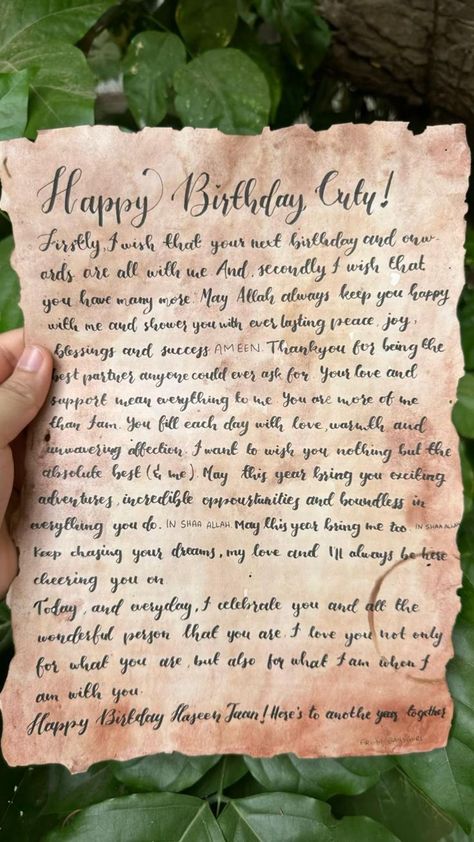 Happy Birthday Cuty!
Firstly, I wish that your next birthday and onw-
ards are all with me And, secondly I wish that
you have many more. May Allah always keep you happy
with me and shower you with ever lasting peace, joy,
blessings and success AMEEN. Thankyou for being the
best partner anyone could ever ask for. Your love and
support mean everything to me. You are more of me
than I am. You fill each day with love, warmth, and
unwavering affection. I want to wish you nothing but the
absolute best (& me). May this year bring you exciting
adventures, incredible oppourtunities and boundless in
everything you do. IN SHAA ALLAH. May this year bring me too. IN SHAA ALLAH
Keep chasing your dreams, my love and I'll always be here
cheering you on
Today, and everyday, I celebrate you and all the
wonderful person that you are. I love you not only
for what you are, but also for what I am when I
am with you.
Happy Birtday Haseen Jaan! Here's to anothe year together